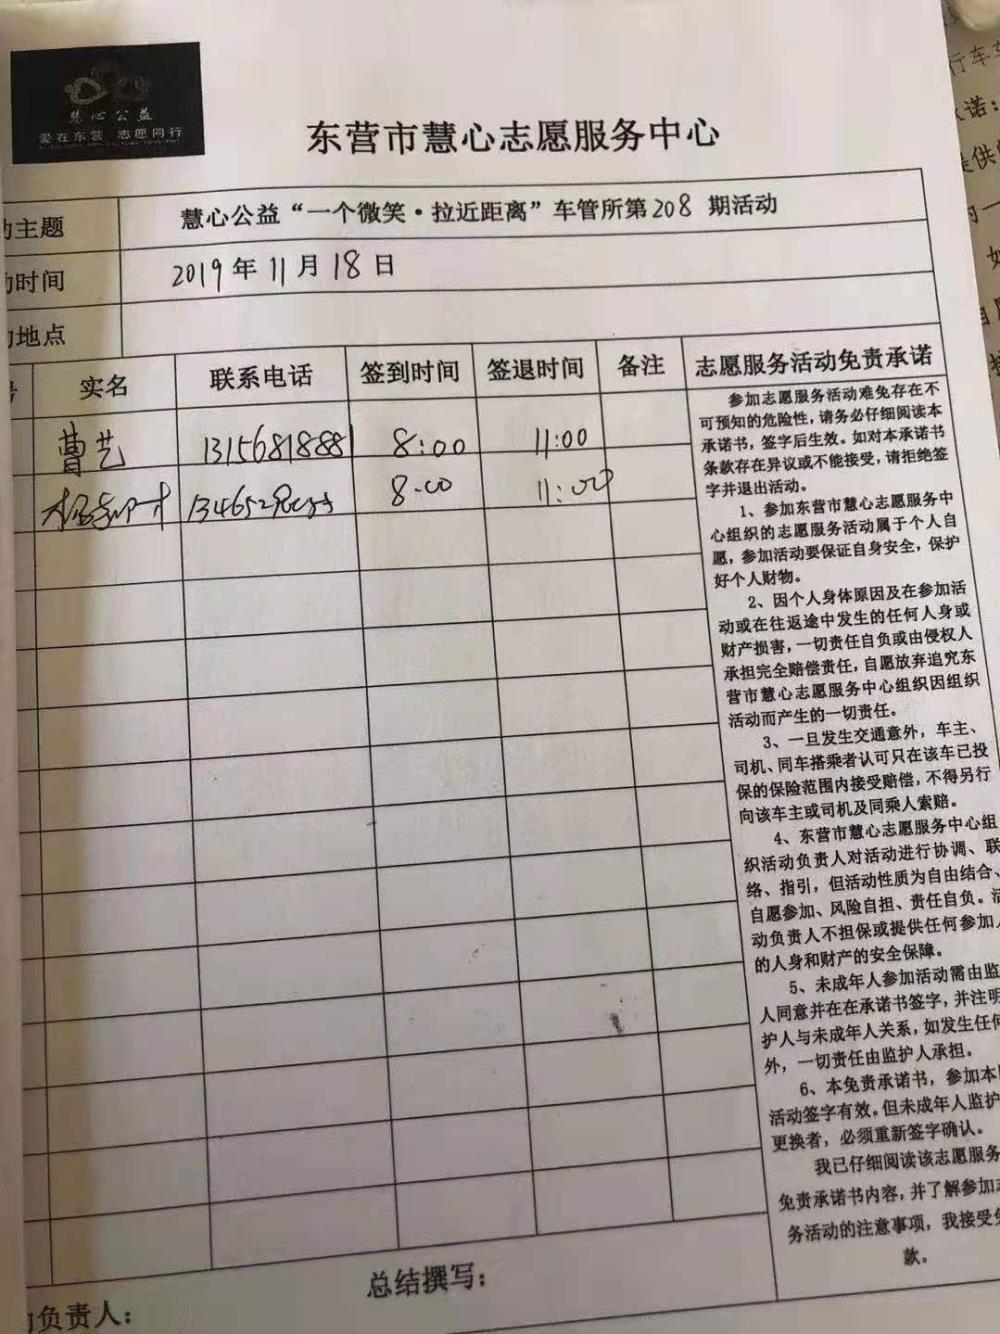 慧心公益
爱在东营 志愿同行
东营市慧心志愿服务中心
动主题 慧心公益“一个微笑·拉近距离”车管所第208期活动
动时间 2019年11月18日
地点
实名 联系电话 签到时间 签退时间 备注 志愿服务活动免责承诺
曹艺 13156818881 8:00 11:00
8:00 11:00
参加志愿服务活动难免存在不
可预知的危险性，请务必仔细阅读本
承诺书，签字后生效。如对本承诺书
条款存在异议或不能接受，请拒绝签
字并退出活动。
1、参加东营市慧心志愿服务中
心组织的志愿服务活动属于个人自
愿，参加活动要保证自身安全，保护
好个人财物。
2、因个人身体原因及在参加活
动或在往返途中发生的任何人身或
财产损害，一切责任自负或由侵权人
承担完全赔偿责任，自愿放弃追究东
营市慧心志愿服务中心组织因组织
活动而产生的一切责任。
3、一旦发生交通意外，车主、
司机、同车搭乘者认可只在该车已投
保的保险范围内接受赔偿，不得另行
向该车主或司机及同乘人索赔。
4、东营市慧心志愿服务中心组
织活动负责人对活动进行协调、联
络、指引，但活动性质为自由结合、
自愿参加、风险自担、责任自负。活
动负责人不担保或提供任何参加人
的人身和财产的安全保障。
5、未成年人参加活动需由监
人同意并在在承诺书签字，并注明
护人与未成年人关系，如发生任何
外，一切责任由监护人承担。
6、本免责承诺书，参加本
活动签字有效。但未成年人监护
更换者，必须重新签字确认。
我已仔细阅读该志愿服务
免责承诺书内容，并了解参加志
务活动的注意事项，我接受免
款。
总结撰写：
负责人：
行车
承诺：
提供